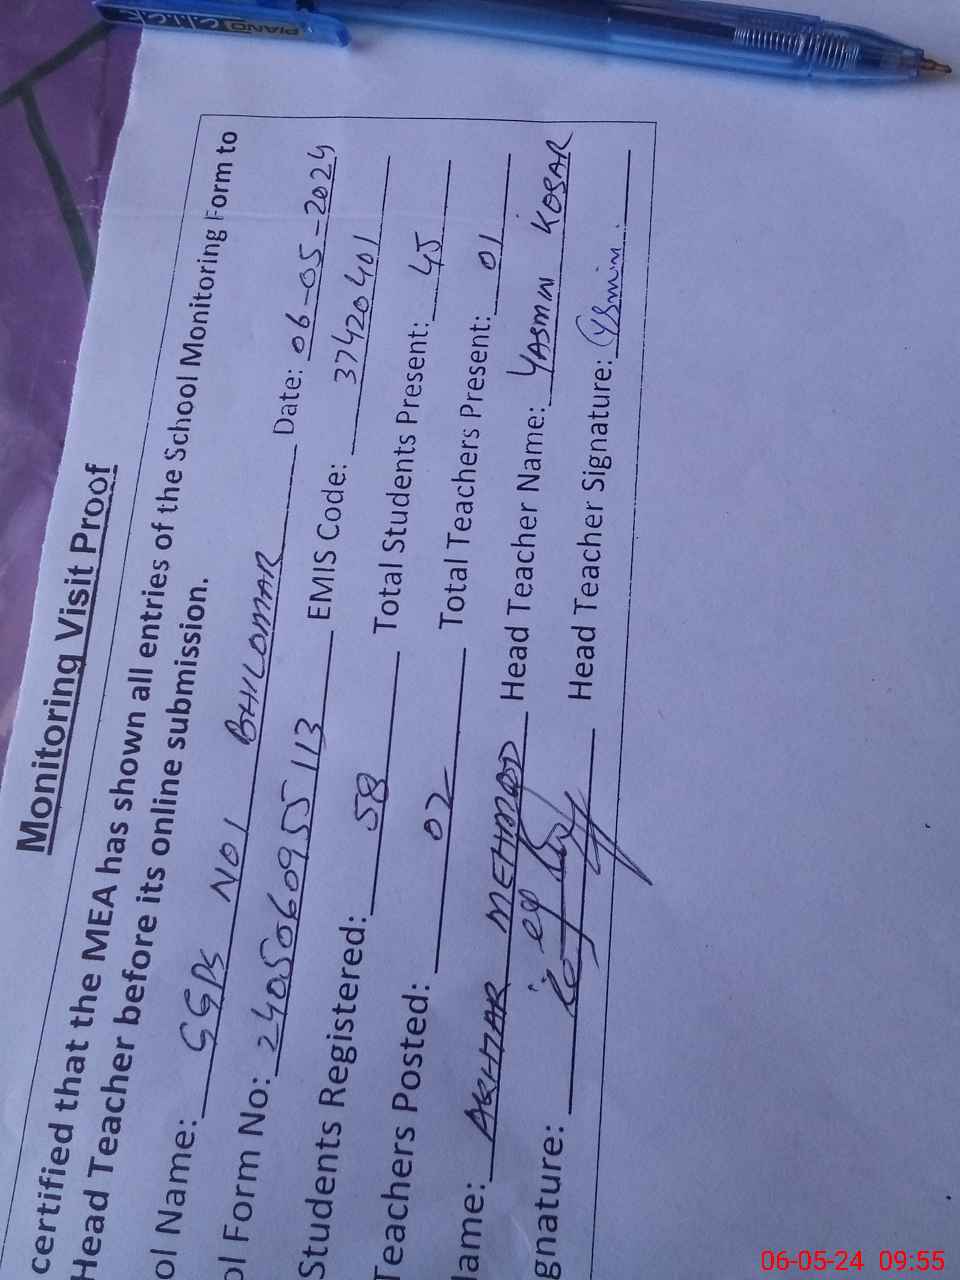 PIANO
Monitoring Visit Proof
certified that the MEA has shown all entries of the School Monitoring Form to
Head Teacher before its online submission.
ol Name: GGPS NO1 BHILOMAR Date: 06-05-2024
ol Form No: 2405060955113 EMIS Code: 37420401
Students Registered: 58 Total Students Present: 45
Teachers Posted: 02 Total Teachers Present: 01
lame: AKHTAR MEHMOOD Head Teacher Name: YASMIN KOSAR
gnature: Head Teacher Signature: Ysmin
06-05-24 09:55